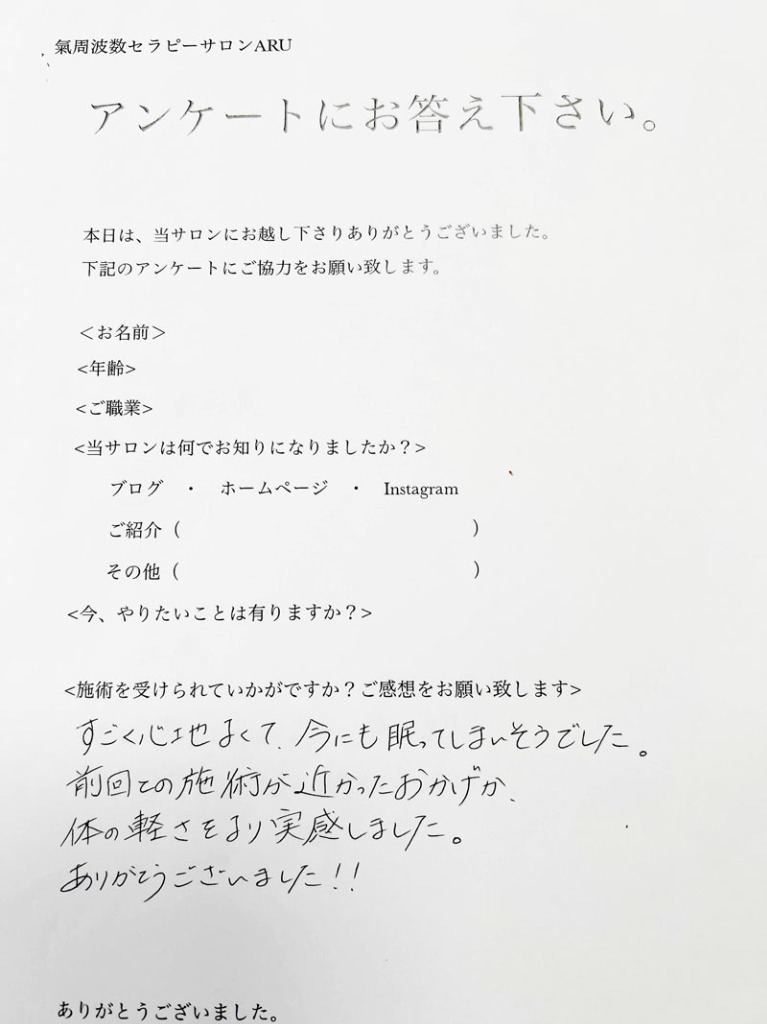 氣周波数セラピーサロンARU
アンケートにお答え下さい。
本日は、当サロンにお越し下さりありがとうございました。
下記のアンケートにご協力をお願い致します。
＜お名前＞
<年齢>
<ご職業>
<当サロンは何でお知りになりましたか？>
ブログ　・　ホームページ　・　Instagram
ご紹介（　　　　　　　　　　　　　　　　）
その他（　　　　　　　　　　　　　　　　）
<今、やりたいことは有りますか？>
<施術を受けられていかがですか？ご感想をお願い致します>
すごく心地よくて、今にも眠ってしまいそうでした。
前回との施術が近かったおかげか、
体の軽さをより実感しました。
ありがとうございました!!
ありがとうございました。